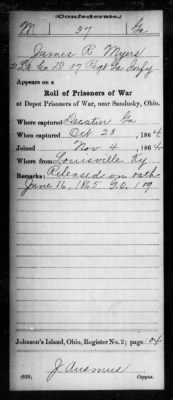 (Confederate.)
M 37 Ga.
James R Myers
Lt Co D 37 Regt Ga Infy
Appears on a
Roll of Prisoners of War
at Depot Prisoners of War, near Sandusky, Ohio.
Where captured Decatur Ga
When captured Oct 28, 1864
Joined Nov 4, 1864
Where from Louisville Ky
Remarks: Released on oath
June 16, 1865 G.O. 109
Johnson's Island, Ohio, Register No. 2; page 04
J Ausmus
Copyist.